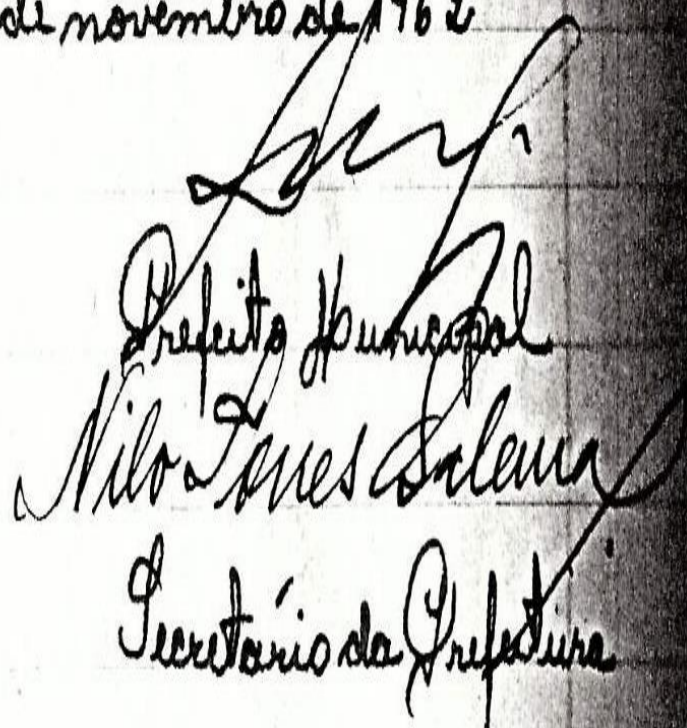 de novembro de 1962
Prefeito Municipal
Nilo Torres Salema
Secretário da Prefeitura